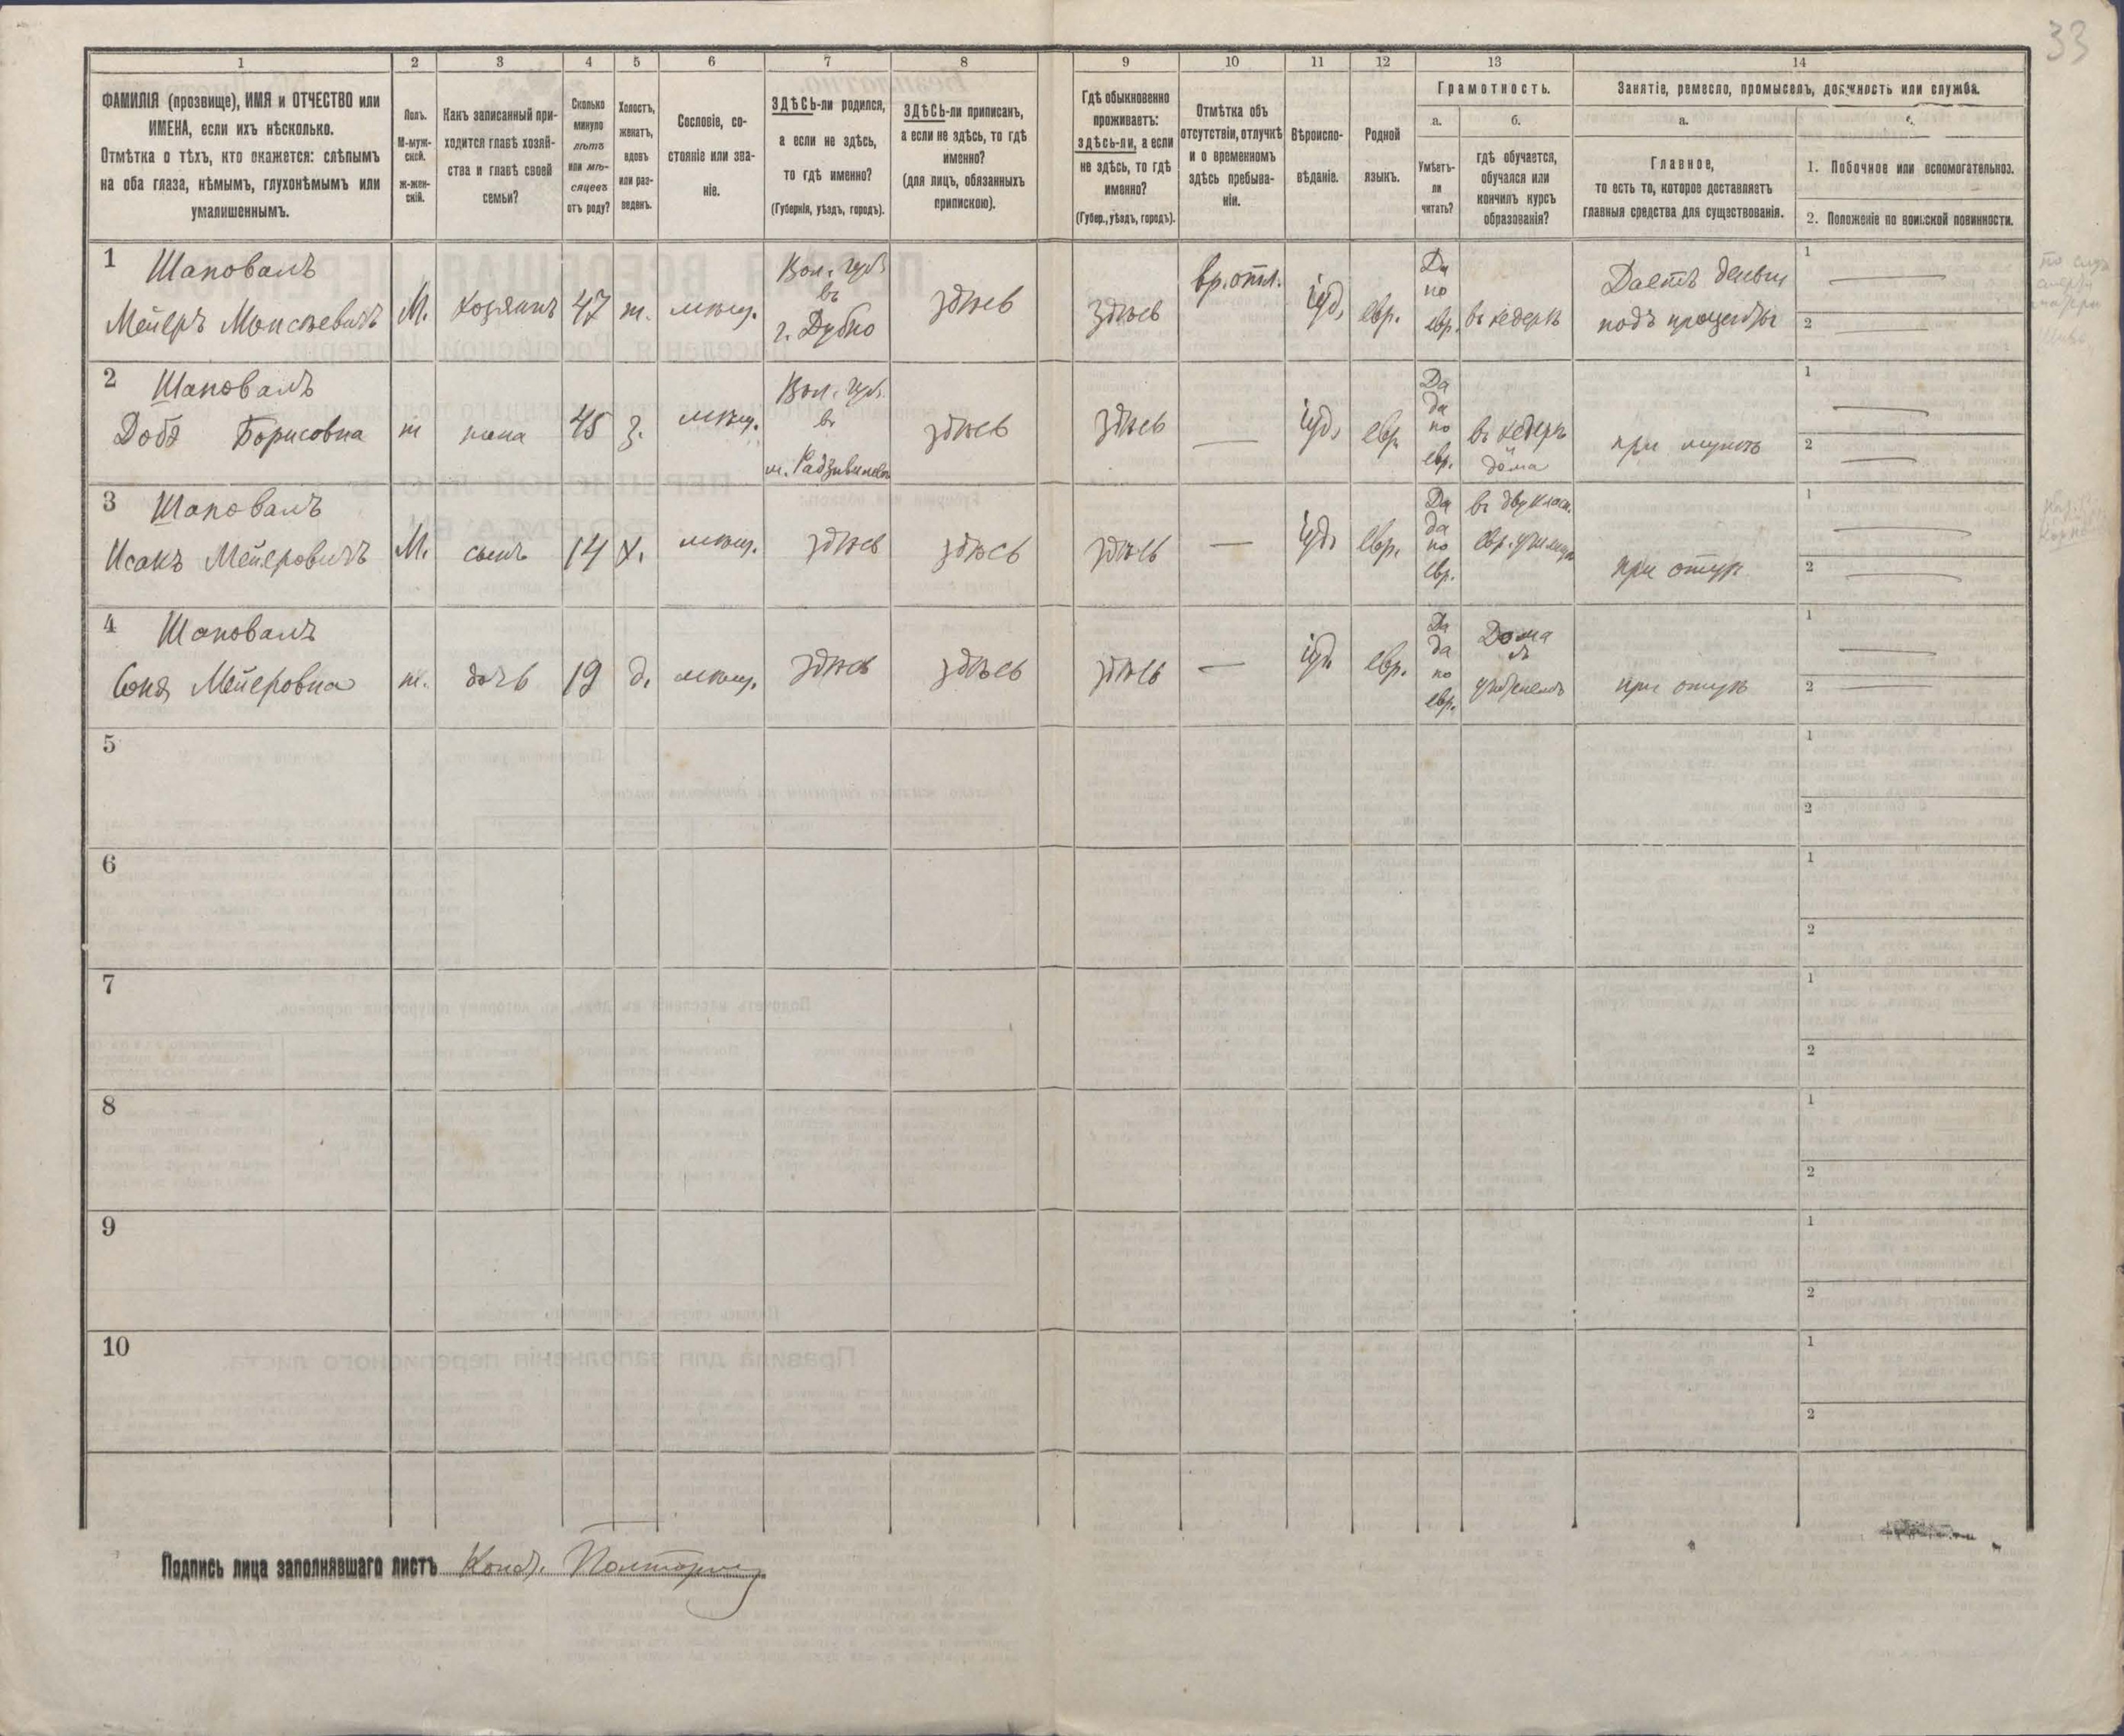 33
1 2 3 4 5 6 7 8 9 10 11 12 13 14
ФАМИЛІЯ (прозвище), ИМЯ и ОТЧЕСТВО или
ИМЕНА, если ихъ нѣсколько.
Отмѣтка о тѣхъ, кто окажется: слѣпымъ
на оба глаза, нѣмымъ, глухонѣмымъ или
умалишеннымъ.
Полъ.
М-муж-
ской.
ж-жен-
скій.
Какъ записанный при-
ходится главѣ хозяй-
ства и главѣ своей
семьи?
Сколько
минуло
лѣтъ
или мѣ-
сяцевъ
отъ роду?
Холостъ,
женатъ,
вдовъ
или раз-
веденъ.
Сословіе, со-
стояніе или зва-
ніе.
ЗДѢСЬ-ли родился,
а если не здѣсь,
то гдѣ именно?
(Губернія, уѣздъ, городъ).
ЗДѢСЬ-ли приписан,
а если не здѣсь, то гдѣ
именно?
(для лицъ, обязанныхъ
припискою).
Гдѣ обыкновенно
проживаетъ:
здѣсь-ли, а если
не здѣсь, то гдѣ
именно?
(Губер., уѣздъ, городъ).
Отмѣтка объ
отсутствіи, отлучкѣ
и о временномъ
здѣсь пребыва-
ніи.
Вѣроиспо-
вѣданіе.
Родной
языкъ.
Грамотность.
а.
Умѣетъ-
ли
читать?
б.
гдѣ обучается,
обучался или
кончилъ курсъ
образованія?
Занятіе, ремесло, промыселъ, должность или служба.
а.
Главное,
то есть то, которое доставляетъ
главныя средства для существованія.
1. Побочное или вспомогательноз.
2. Положеніе по воинской повинности.
1 Шаповалъ
Мейеръ Моисѣевичъ
М.
хозяинъ
47
ж.
мѣщ.
Вол. губ.
въ
г. Дубно
здѣсь
здѣсь
вр. отл.
іуд.
евр.
Да
по
евр.
въ хедерѣ
Даетъ деньги
подъ проценты
1
2
2 Шаповалъ
Добя Борисовна
ж
жена
45
з.
мѣщ.
Вол. губ.
въ
м. Радзивиловъ
здѣсь
здѣсь
іуд.
евр.
Да
да
по
евр.
въ хедерѣ
дома
при мужѣ
1
2
3 Шаповалъ
Исакъ Мейеровичъ
М.
сынъ
14
х.
мѣщ.
здѣсь
здѣсь
здѣсь
іуд.
евр.
Да
да
по
евр.
въ двуклас.
евр. училищ
при отцѣ
1
2
4 Шаповалъ
Соня Мейеровна
ж.
дочь
19
д.
мѣщ.
здѣсь
здѣсь
здѣсь
іуд.
евр.
Да
да
по
евр.
Дома
съ
учителемъ
при отцѣ
1
2
5
1
2
6
1
2
7
1
2
8
1
2
9
1
2
10
1
2
Подпись лица заполнявшаго листъ